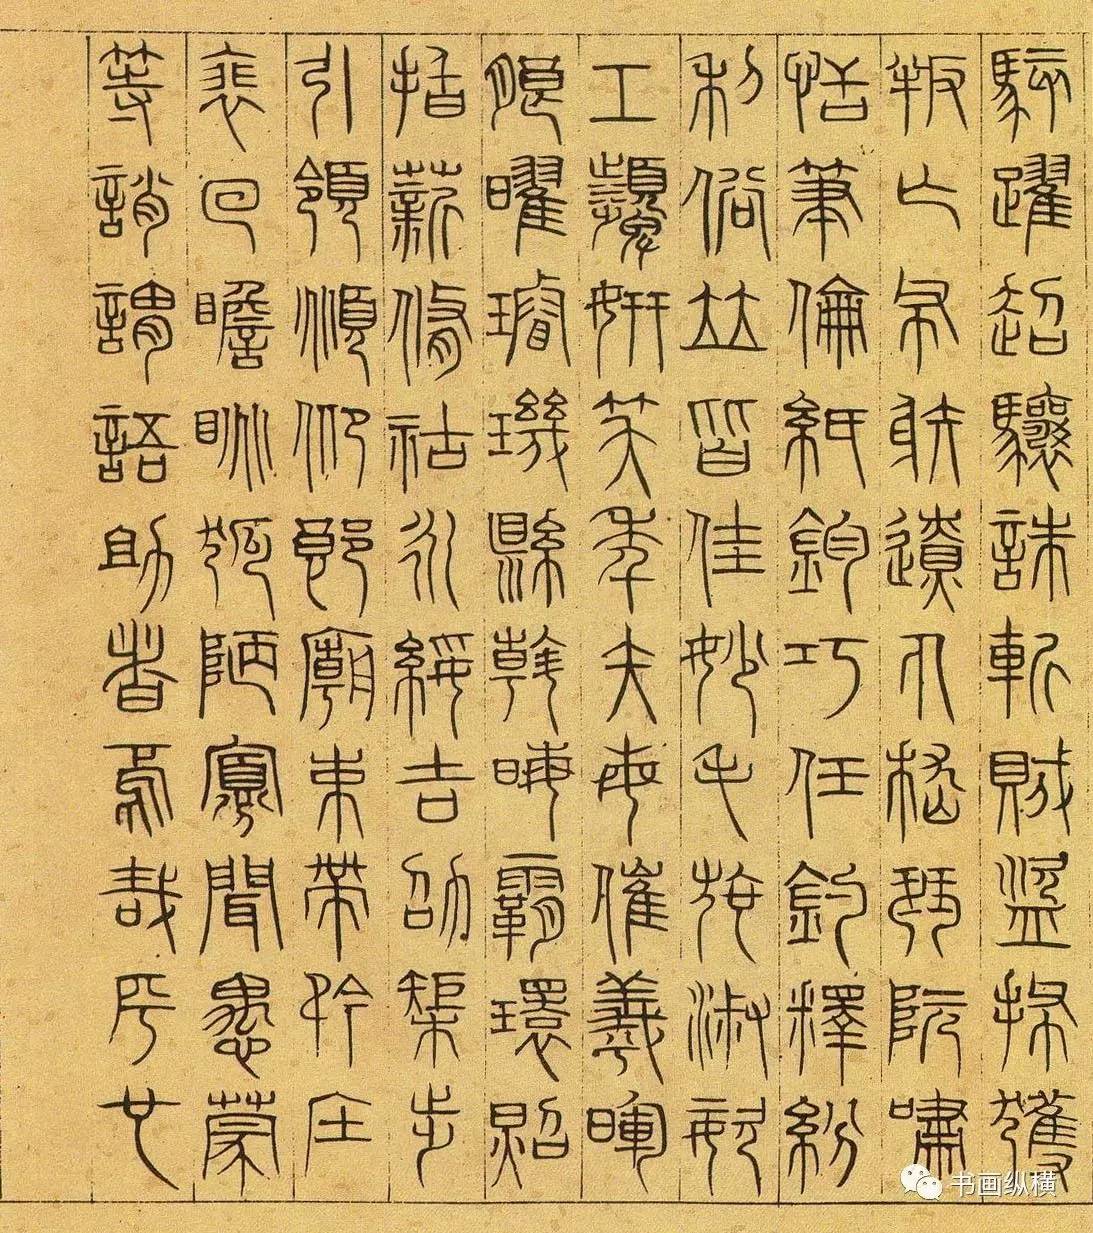 駭躍超驤誅斬賊盜捕獲
叛亡布射遼丸嵇琴阮嘯
恬筆倫紙鈞巧任釣釋紛
利俗並皆佳妙毛施淑姿
工顰妍笑年矢每催羲暉
朗曜璇璣懸斡晦魄環照
指薪修祜永綏吉劭矩步
引領俯仰廊廟束帶矜莊
徘徊瞻眺孤陋寡聞愚蒙
等誚謂語助者焉哉乎也
书画纵横